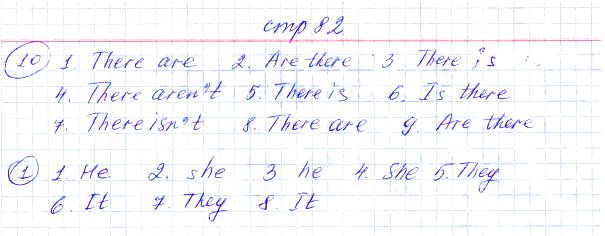 стр 82
10 1. There are 2. Are there 3 There is
4. There aren't 5. There is 6. Is there
7. There isn't 8. There are 9. Are there
1 1. He 2. she 3 he 4. She 5. They
6. It 7. They 8. It